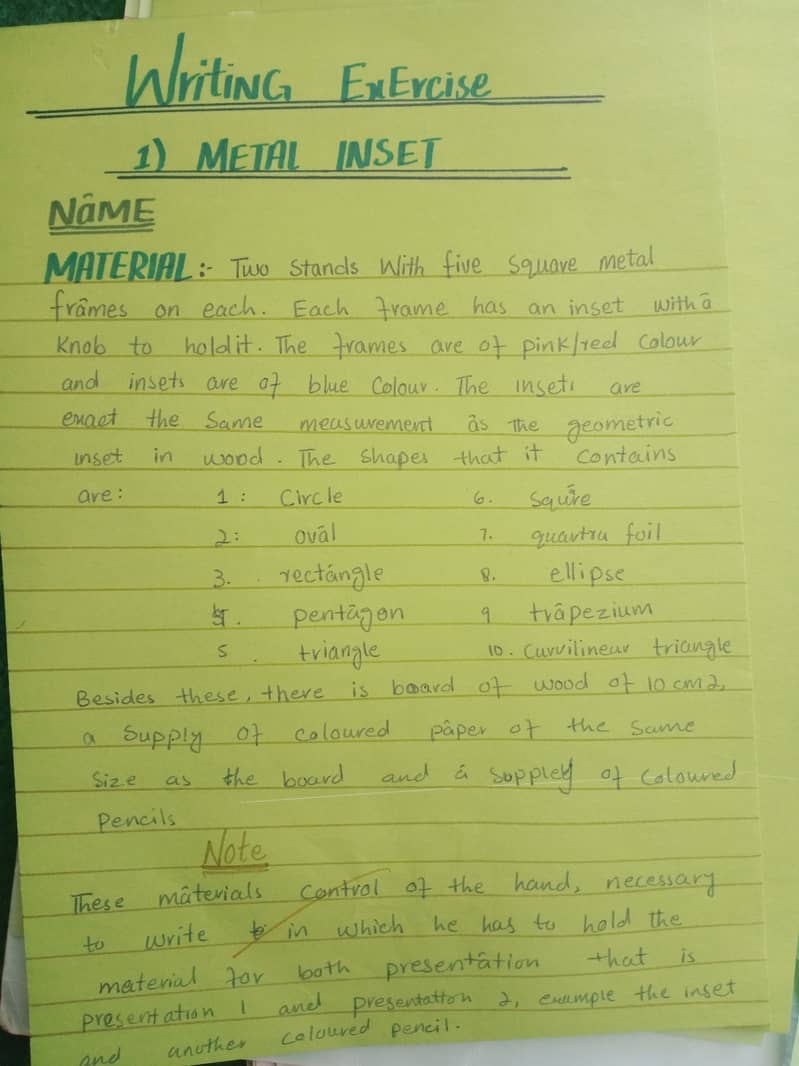 Writing ExErcise
1) METAL INSET
NāME
MATERIAL :- Two Stands With five Square metal
frāmes on each. Each frame has an inset with ā
Knob to hold it. The frames are of pink/red Colour
and insets are of blue Colour. The insets are
exact the Same measurement ās The geometric
inset in wood. The Shapes that it Contains
are: 1: Circle 6. Squāre
2: ovāl 7. quartra foil
3. rectāngle 8. ellipse
4. pentāgon 9 trāpezium
5. triangle 10. Curvilinear triangle
Besides these, there is board of wood of 10 cm2,
a Supply of coloured pāper of the Same
Size as the board and ā Suppley of Coloured
Pencils
Note
These māterials Control of the hand, necessary
to write in which he has to hold the
material for both presentātion that is
presentation 1 and presentation 2, example the inset
and another coloured pencil.